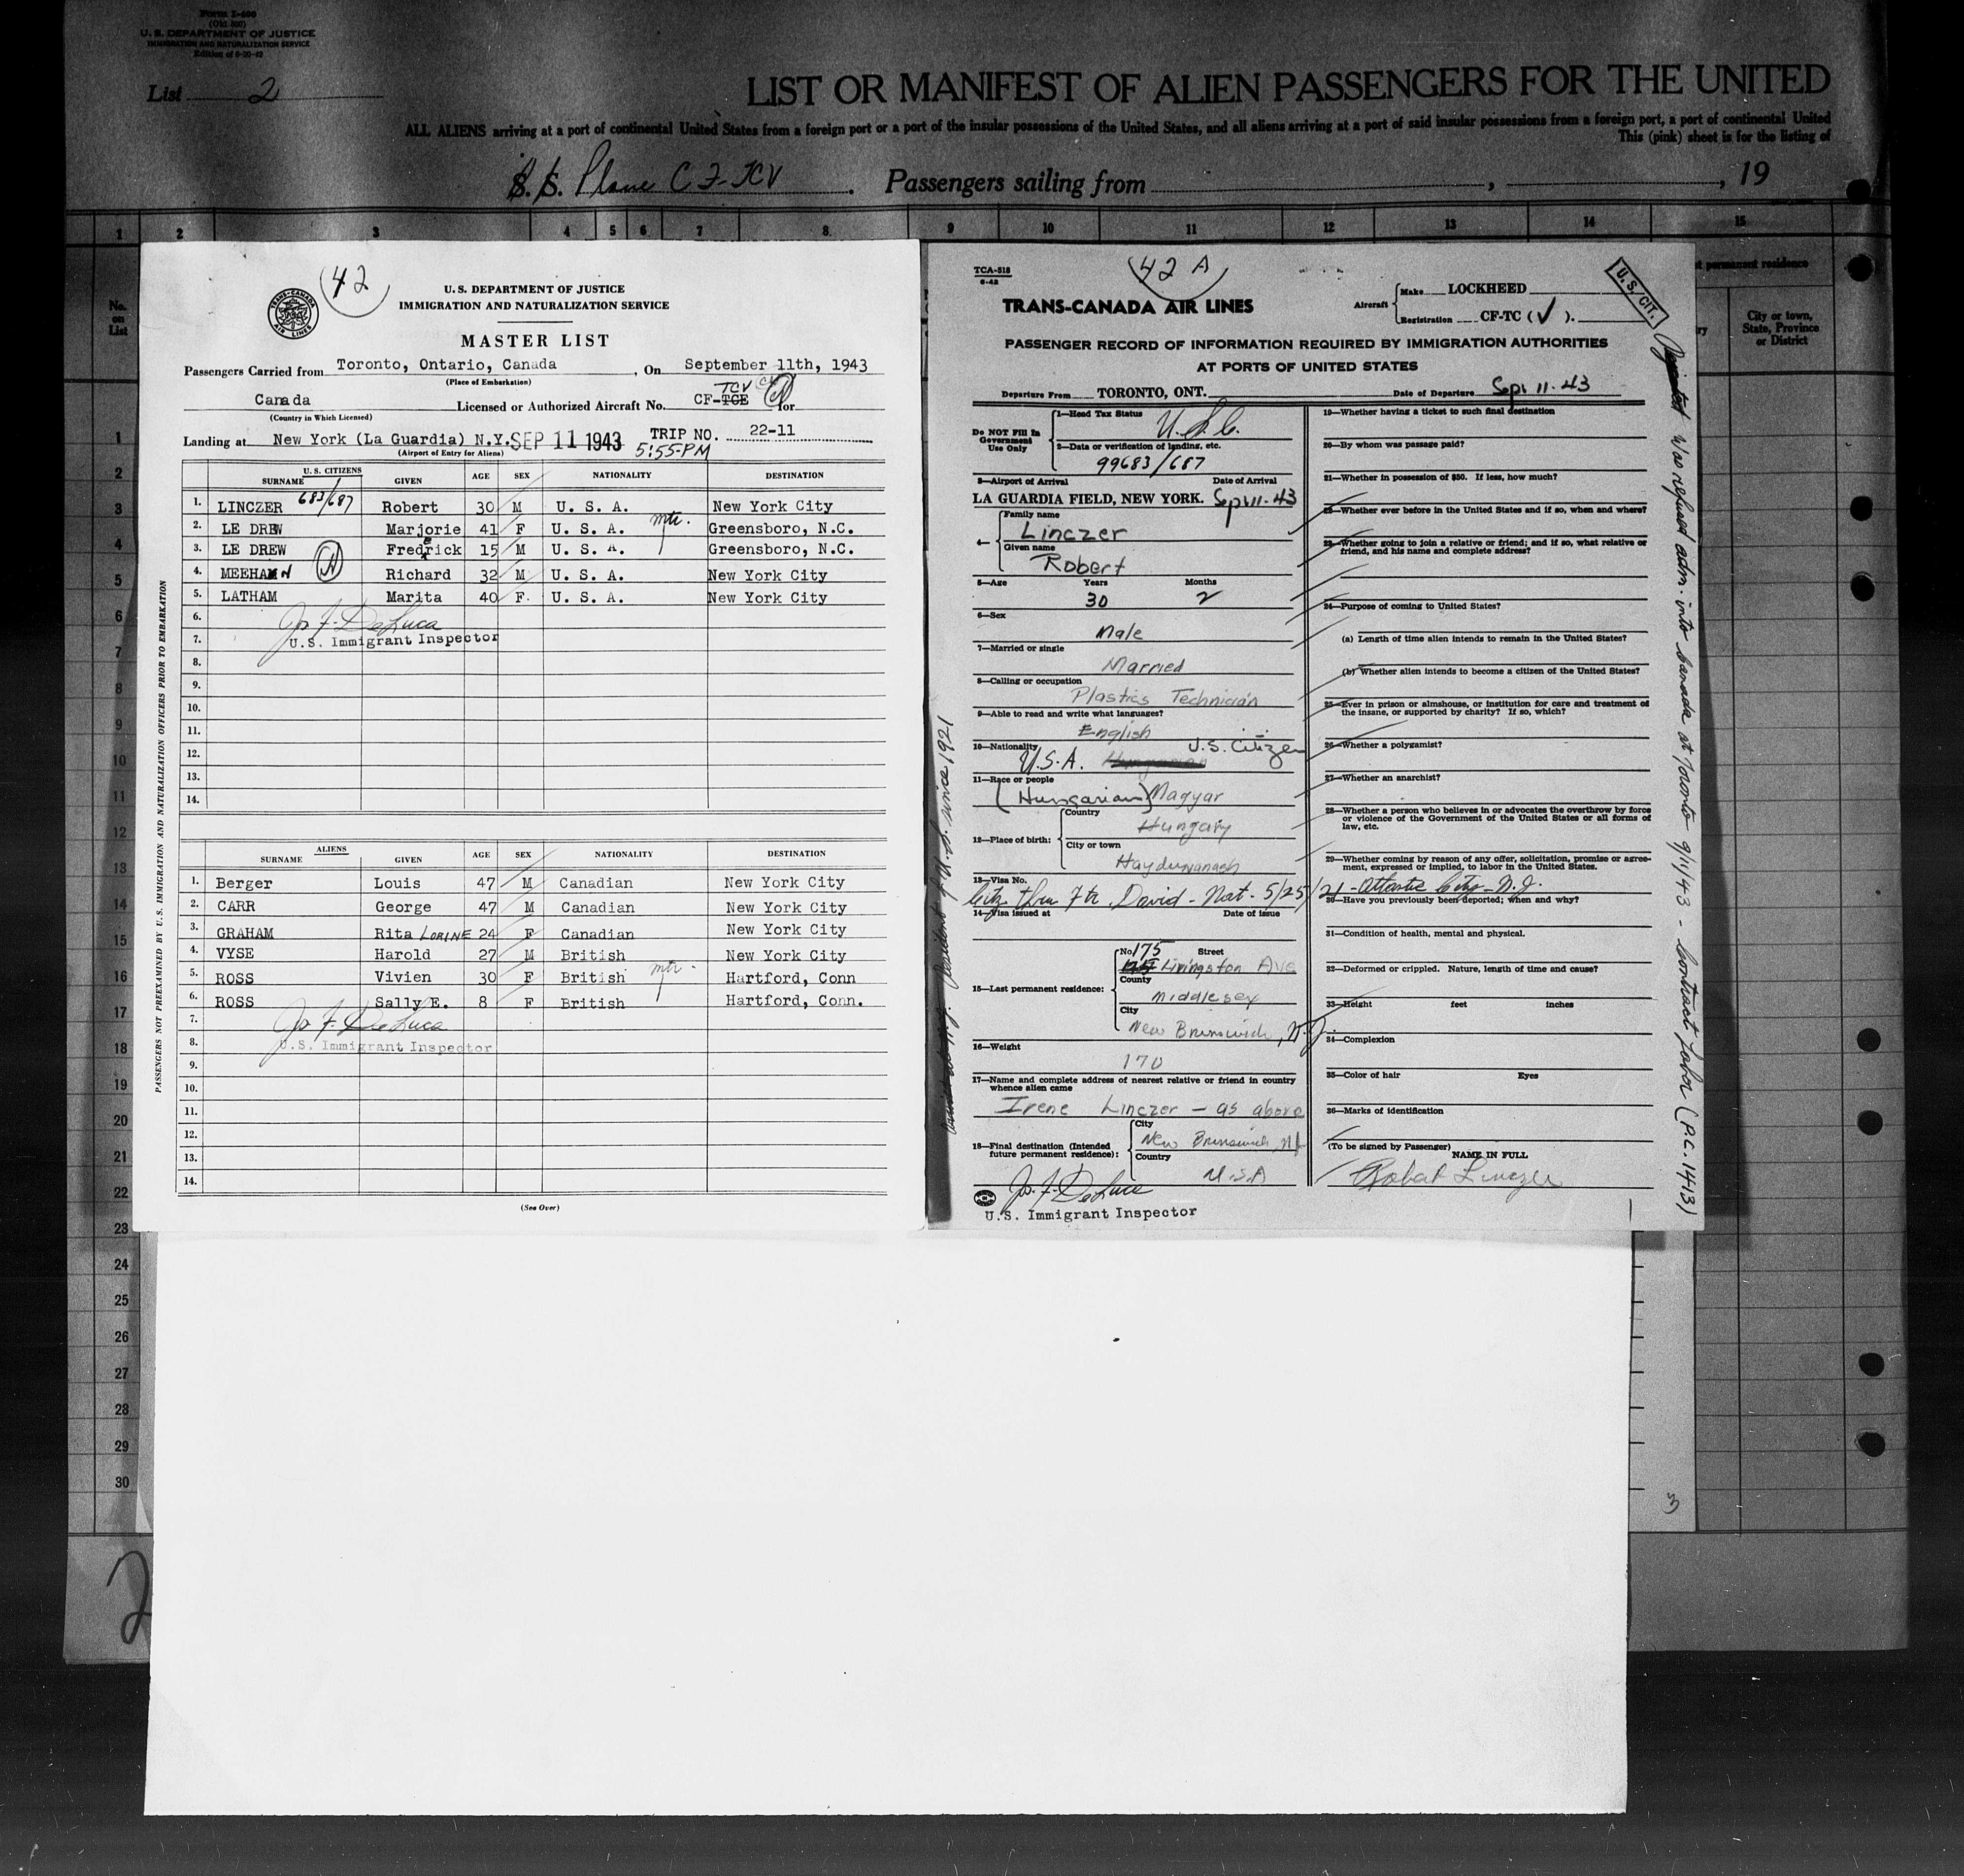 Form I-400
(Old 500)
U. S. DEPARTMENT OF JUSTICE
IMMIGRATION AND NATURALIZATION SERVICE
Edition of 6-20-42
List 2
LIST OR MANIFEST OF ALIEN PASSENGERS FOR THE UNITED
ALL ALIENS arriving at a port of continental United States from a foreign port or a port of the insular possessions of the United States, and all aliens arriving at a port of said insular possessions from a foreign port, a port of continental United
This (pink) sheet is for the listing of
S. S. Plane CF-TCV . Passengers sailing from , , 19
1 2 3 4 5 6 7 8 9 10 11 12 13 14 15
No. on List
t permanent residence
City or town, State, Province or District
1
2
3
4
5
6
7
8
9
10
11
12
13
14
15
16
17
18
19
20
21
22
23
24
25
26
27
28
29
30
2
42
TRANS-CANADA AIR LINES
U. S. DEPARTMENT OF JUSTICE
IMMIGRATION AND NATURALIZATION SERVICE
MASTER LIST
Passengers Carried from Toronto, Ontario, Canada , On September 11th, 1943
(Place of Embarkation)
TCV
Canada Licensed or Authorized Aircraft No. CF-TCE for
(Country in Which Licensed)
Landing at New York (La Guardia) N.Y. SEP 11 1943 TRIP NO. 22-11
(Airport of Entry for Aliens) 5:55-PM
PASSENGERS NOT PREEXAMINED BY U. S. IMMIGRATION AND NATURALIZATION OFFICERS PRIOR TO EMBARKATION
U. S. CITIZENS
SURNAME GIVEN AGE SEX NATIONALITY DESTINATION
1. LINCZER 683/687 Robert 30 M U. S. A. New York City
2. LE DREW Marjorie 41 F U. S. A. mtr. Greensboro, N.C.
3. LE DREW Fredrick 15 M U. S. A. Greensboro, N.C.
4. MEEHAN Richard 32 M U. S. A. New York City
5. LATHAM Marita 40 F U. S. A. New York City
6. Jo. F. DeLuca
7. U.S. Immigrant Inspector
8.
9.
10.
11.
12.
13.
14.
ALIENS
SURNAME GIVEN AGE SEX NATIONALITY DESTINATION
1. Berger Louis 47 M Canadian New York City
2. CARR George 47 M Canadian New York City
3. GRAHAM Rita LORINE 24 F Canadian New York City
4. VYSE Harold 27 M British New York City
5. ROSS Vivien 30 F British mtr. Hartford, Conn
6. ROSS Sally E. 8 F British Hartford, Conn.
7. Jo. F. DeLuca
8. U.S. Immigrant Inspector
9.
10.
11.
12.
13.
14.
(See Over)
TCA-518
6-42
42 A
TRANS-CANADA AIR LINES
Aircraft Make LOCKHEED
Registration CF-TC ( ✓ ).
U. S. CIT.
PASSENGER RECORD OF INFORMATION REQUIRED BY IMMIGRATION AUTHORITIES
AT PORTS OF UNITED STATES
Departure From TORONTO, ONT. Date of Departure Sept 11-43
Do NOT Fill in Government Use Only
1—Head Tax Status U.S.C.
2—Data or verification of landing, etc.
99683/687
3—Airport of Arrival Date of Arrival
LA GUARDIA FIELD, NEW YORK. Sept 11-43
4— Family name
Linczer
Given name
Robert
5—Age Years Months
30 2
6—Sex
Male
7—Married or single
Married
8—Calling or occupation
Plastics Technician
9—Able to read and write what languages?
English
10—Nationality U.S. Citizen
U.S.A. Hungarian
11—Race or people
(Hungarian) Magyar
12—Place of birth: Country
Hungary
City or town
Hayduvanash
13—Visa No.
Citz thru Ftr. David - Nat. 5/25/21 - Atlantic City - N.J.
14—Visa issued at Date of issue
15—Last permanent residence: No. 175 Street
Livingston Ave
County
Middlesex
City
New Brunswick, N.J.
16—Weight
170
17—Name and complete address of nearest relative or friend in country whence alien came
Irene Linczer - as above
18—Final destination (Intended future permanent residence): City
New Brunswick, NJ
Country
U.S.A
Jo. F. DeLuca
U.S. Immigrant Inspector
19—Whether having a ticket to such final destination
20—By whom was passage paid?
21—Whether in possession of $50. If less, how much?
22—Whether ever before in the United States and if so, when and where?
23—Whether going to join a relative or friend; and if so, what relative or friend, and his name and complete address?
24—Purpose of coming to United States?
(a) Length of time alien intends to remain in the United States?
(b) Whether alien intends to become a citizen of the United States?
25—Ever in prison or almshouse, or institution for care and treatment of the insane, or supported by charity? If so, which?
26—Whether a polygamist?
27—Whether an anarchist?
28—Whether a person who believes in or advocates the overthrow by force or violence of the Government of the United States or all forms of law, etc.
29—Whether coming by reason of any offer, solicitation, promise or agreement, expressed or implied, to labor in the United States?
30—Have you previously been deported; when and why?
31—Condition of health, mental and physical.
32—Deformed or crippled. Nature, length of time and cause?
33—Height feet inches
34—Complexion
35—Color of hair Eyes
36—Marks of identification
(To be signed by Passenger)
NAME IN FULL
Robert Linczer
resident of U.S. since 1921
Rejected Was refused adm. into Canada at Toronto 9/11/43 - Contract Labor (P.C. 1413)